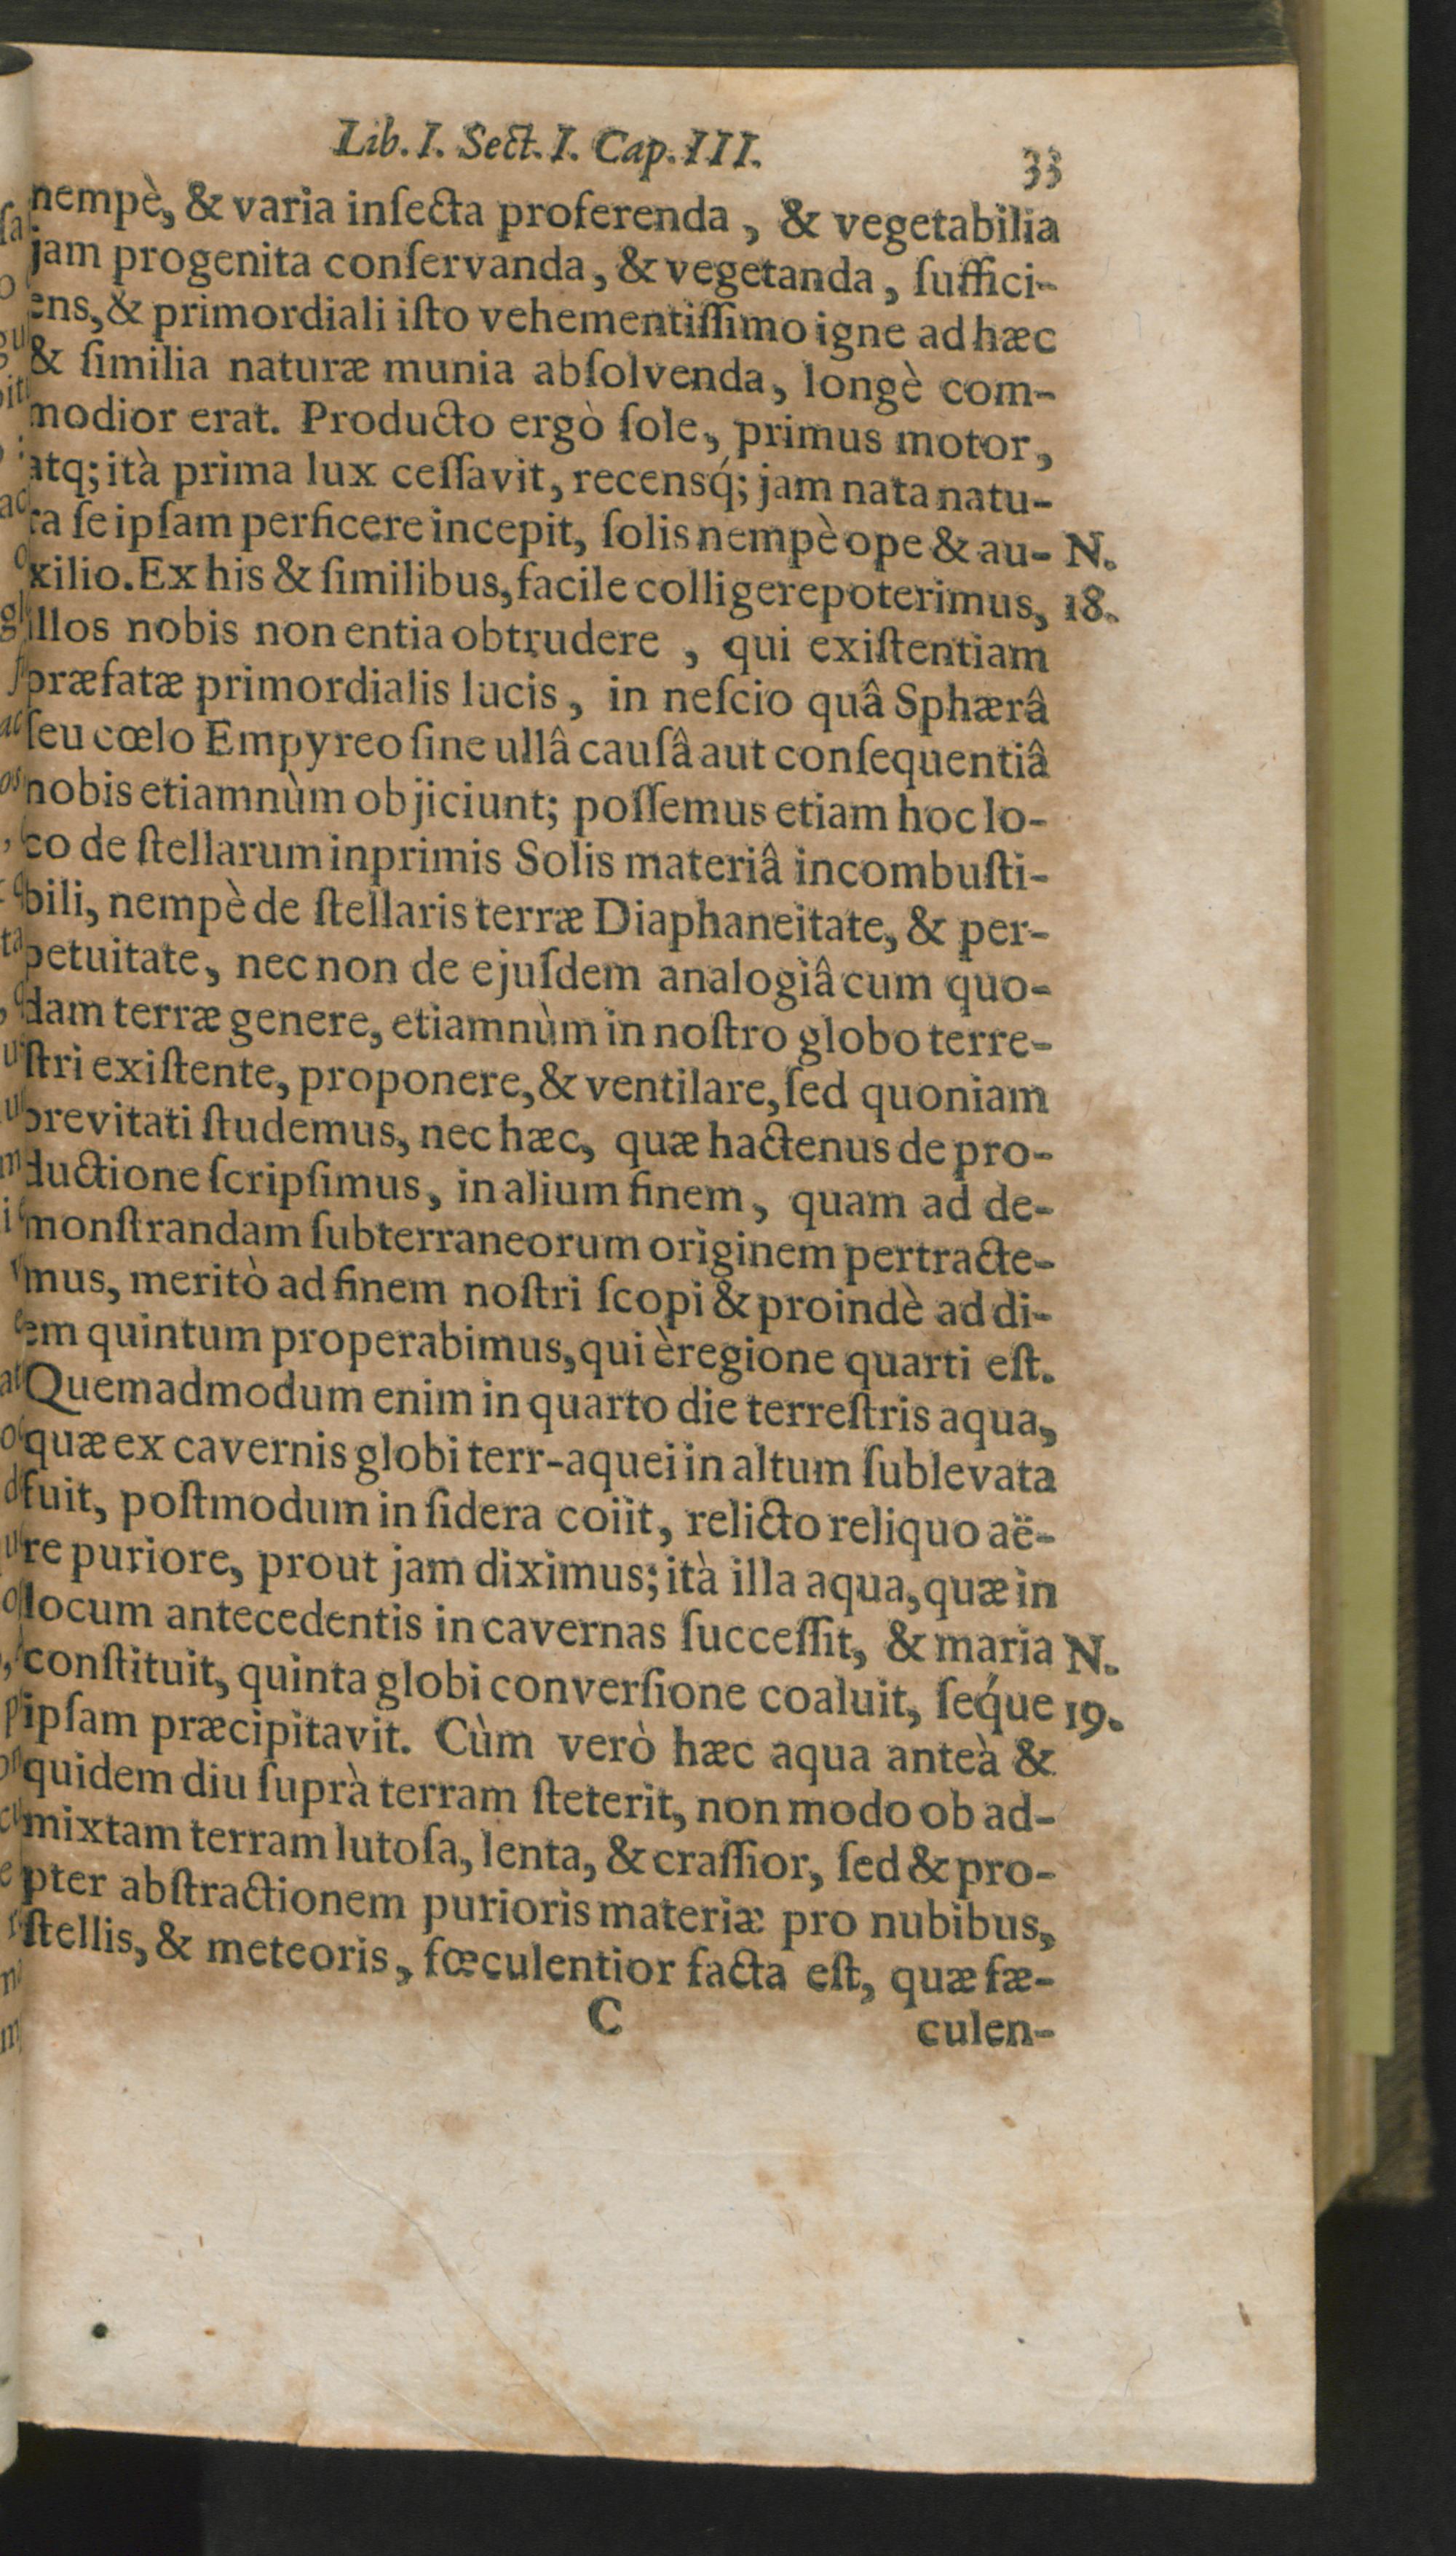 Lib. I. Sect. I. Cap. III. 33
nempè, & varia inſecta proferenda, & vegetabilia
jam progenita conſervanda, & vegetanda, ſuffici-
ens, & primordiali iſto vehementiſſimo igne ad hæc
& ſimilia naturæ munia abſolvenda, longè com-
modior erat. Producto ergò ſole, primus motor,
atq; ità prima lux ceſſavit, recensq́; jam nata natu-
ra ſe ipſam perficere incepit, ſolis nempè ope & au- N.
xilio. Ex his & ſimilibus, facile colligere poterimus, 18.
illos nobis non entia obtrudere, qui exiſtentiam
præfatæ primordialis lucis, in neſcio quâ Sphærâ
ſeu cœlo Empyreo ſine ullâ cauſâ aut conſequentiâ
nobis etiamnùm objiciunt; poſſemus etiam hoc lo-
co de ſtellarum inprimis Solis materiâ incombuſti-
bili, nempè de ſtellaris terræ Diaphaneitate, & per-
petuitate, nec non de ejuſdem analogiâ cum quo-
dam terræ genere, etiamnùm in noſtro globo terre-
ſtri exiſtente, proponere, & ventilare, ſed quoniam
brevitati ſtudemus, nec hæc, quæ hactenus de pro-
ductione ſcripſimus, in alium finem, quam ad de-
monſtrandam ſubterraneorum originem pertracte-
mus, meritò ad finem noſtri ſcopi & proindè ad di-
em quintum properabimus, qui è regione quarti eſt.
Quemadmodum enim in quarto die terreſtris aqua,
quæ ex cavernis globi terr-aquei in altum ſublevata
fuit, poſtmodum in ſidera coiit, relicto reliquo aë-
re puriore, prout jam diximus; ità illa aqua, quæ in
locum antecedentis in cavernas ſucceſſit, & maria N.
conſtituit, quinta globi converſione coaluit, ſeq́ue 19.
ipſam præcipitavit. Cùm verò hæc aqua anteà &
quidem diu ſuprà terram ſteterit, non modo ob ad-
mixtam terram lutoſa, lenta, & craſſior, ſed & pro-
pter abſtractionem purioris materiæ pro nubibus,
ſtellis, & meteoris, fœculentior facta eſt, quæ fæ-
C culen-